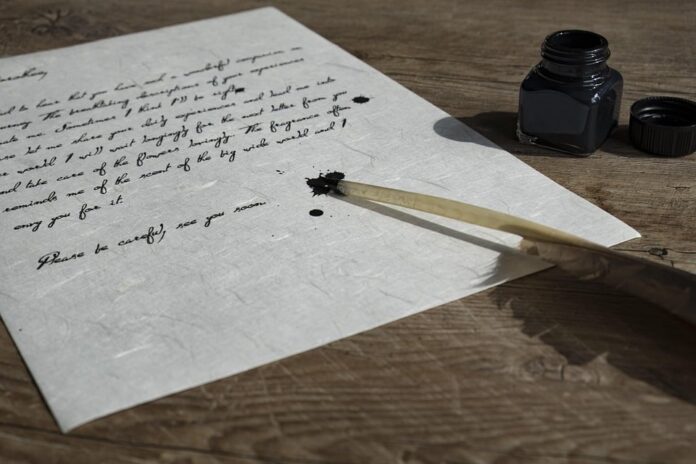 to hear that you have such a wonderful companion on
journey. The breathtaking descriptions of your experiences
me. Sometimes I think I'll be right
let me share your daily experiences and lead me into
world. I will wait longingly for the next letter from you
and take care of the flowers lovingly. The fragrance often
reminds me of the scent of the big wide world and I
envy you for it.
Please be careful, see you soon